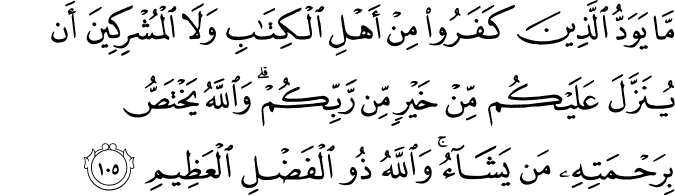 مَّا يَوَدُّ ٱلَّذِينَ كَفَرُوا۟ مِنْ أَهْلِ ٱلْكِتَـٰبِ وَلَا ٱلْمُشْرِكِينَ أَن
يُنَزَّلَ عَلَيْكُم مِّنْ خَيْرٍ مِّن رَّبِّكُمْ ۗ وَٱللَّهُ يَخْتَصُّ
بِرَحْمَتِهِۦ مَن يَشَآءُ ۚ وَٱللَّهُ ذُو ٱلْفَضْلِ ٱلْعَظِيمِ ١٠٥